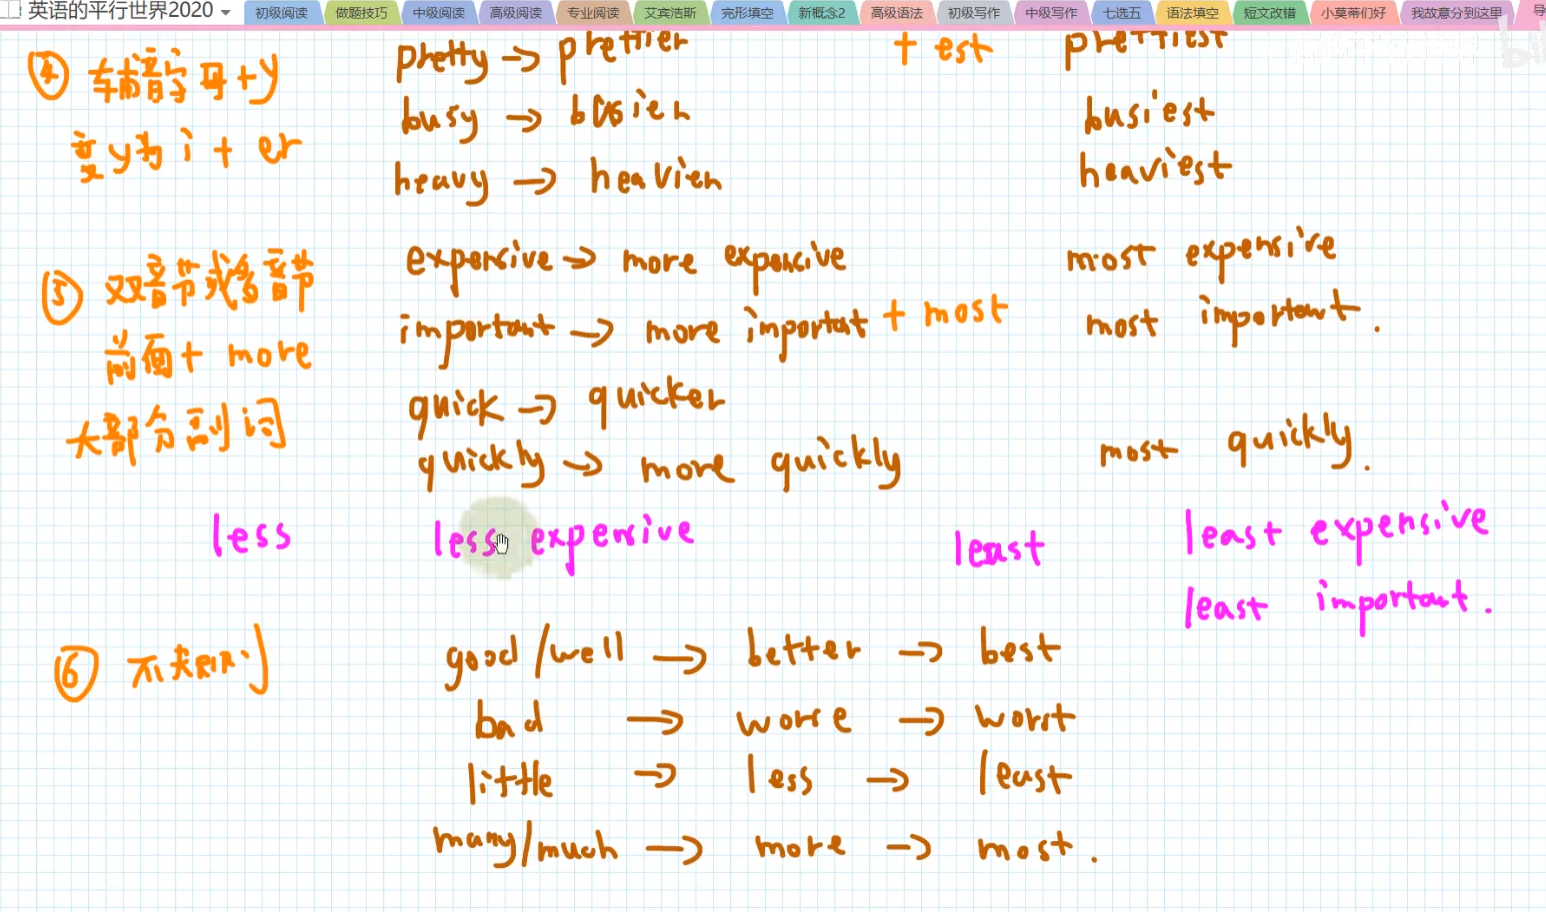 英语的平行世界2020
初级阅读 做题技巧 中级阅读 高级阅读 专业阅读 艾宾浩斯 完形填空 新概念2 高级语法 初级写作 中级写作 七选五 语法填空 短文改错 小莫蒂们好 我故意分到这里 导
④ 辅音字母+y pretty → prettier + est prettiest
busy → busier busiest
变y为i + er
heavy → heavier heaviest
⑤ 双音节或多音节 expensive → more expensive most expensive
important → more important + most most important.
前面+ more
quick → quicker
大部分副词
quickly → more quickly most quickly.
less less expensive least least expensive
least important.
⑥ 不规则 good/well → better → best
bad → worse → worst
little → less → least
many/much → more → most.